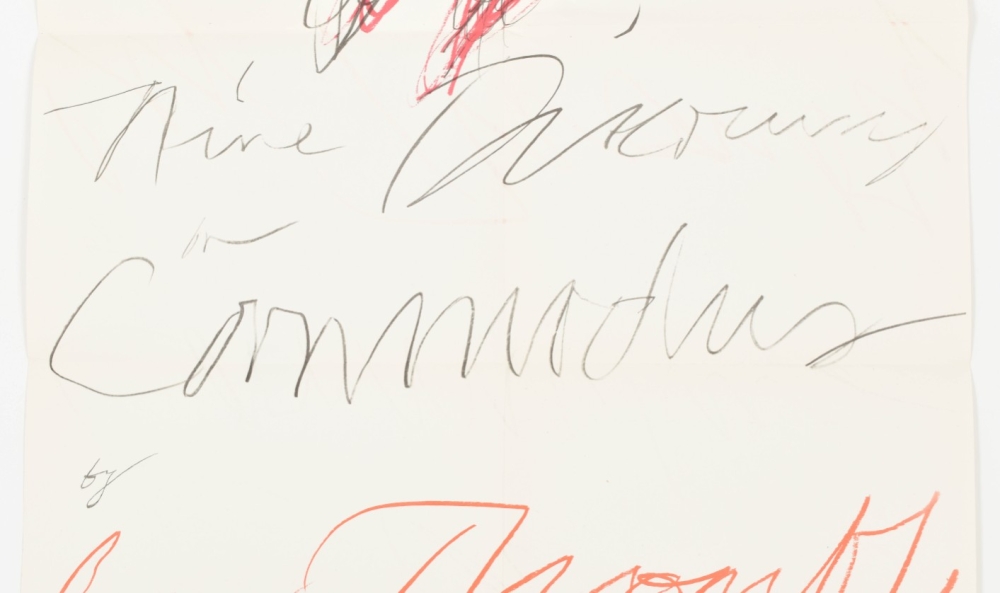 Nine Discourses
on
Commodus
by
Twombly